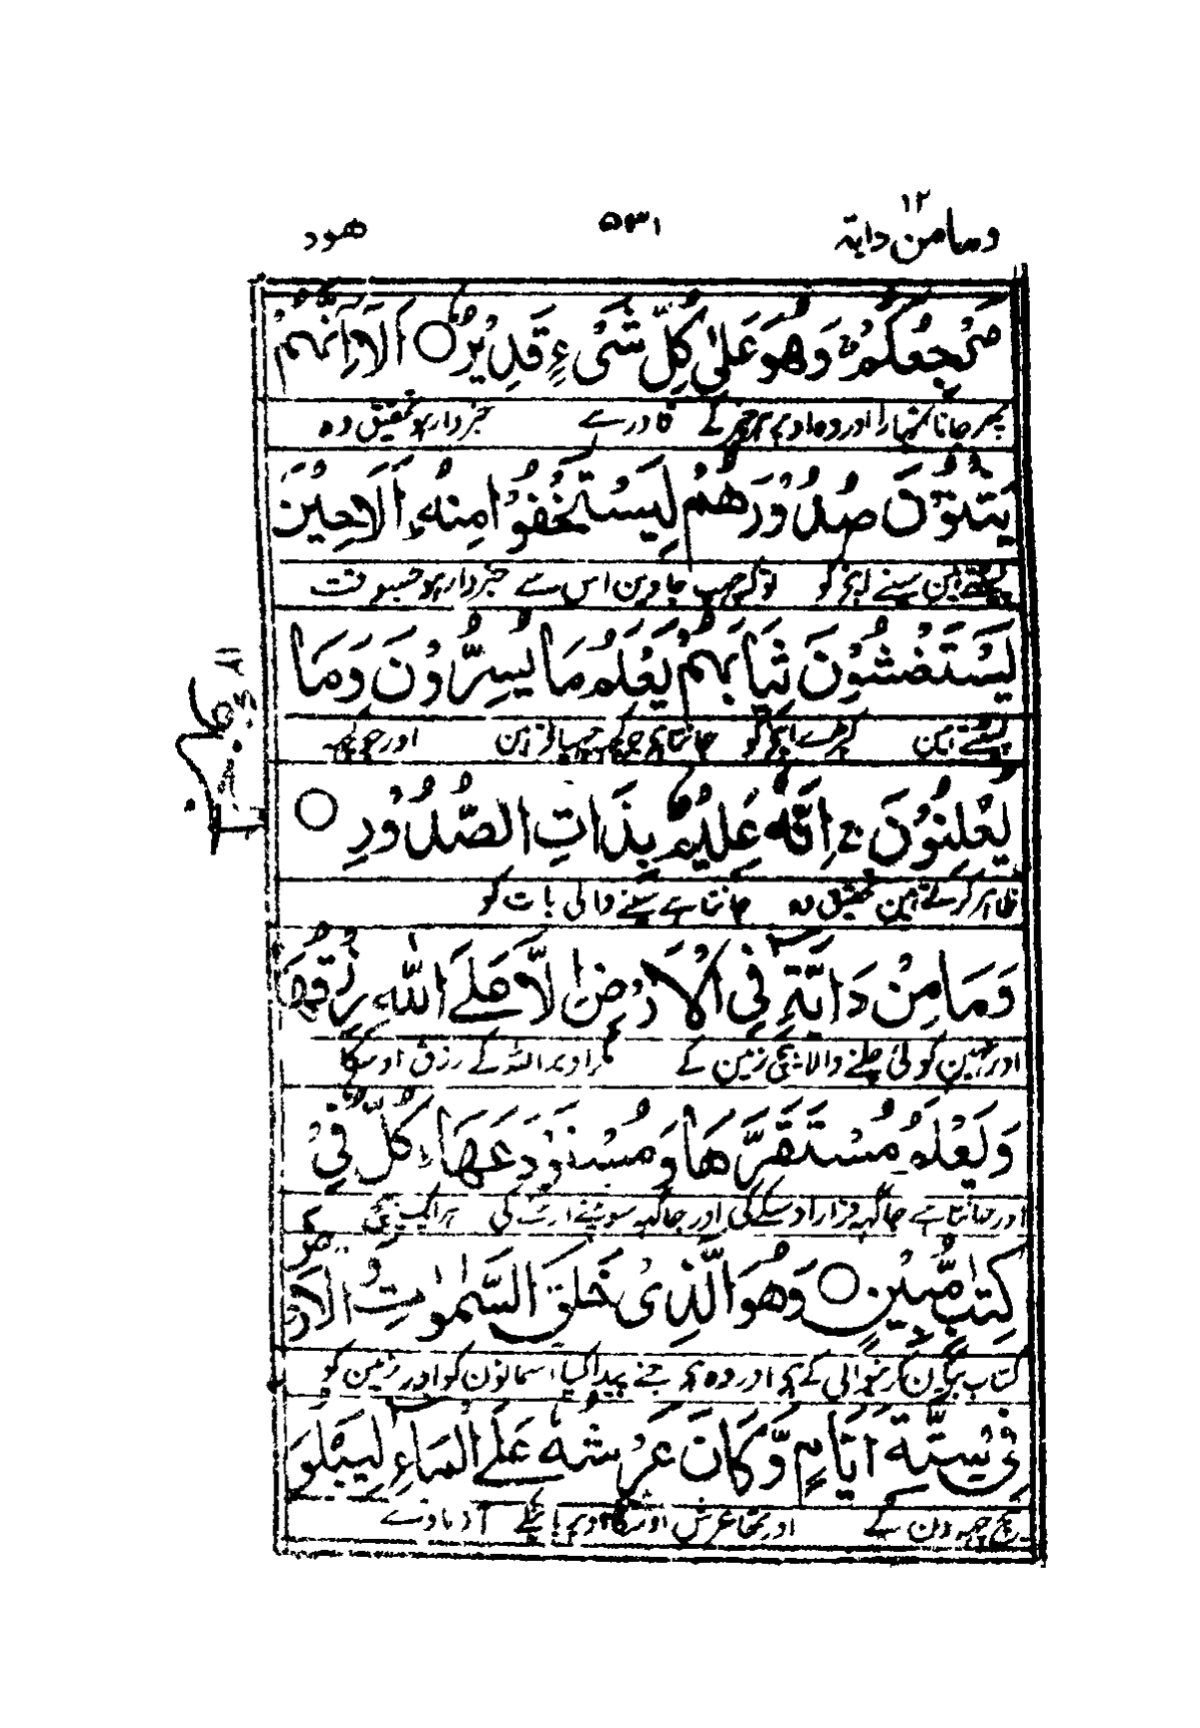 ١٢
ومامن دابة ٥٣١ هود
مَرْجِعُكُمْ ۚ وَهُوَ عَلٰی كُلِّ شَیْءٍ قَدِیْرٌ ○ اَلَاۤ اِنَّهُمْ
پھر جانا تمہارا اور وہ اوپر ہر چیز کے قادر ہے خبردار ہو تحقیق وہ
یَثْنُوْنَ صُدُوْرَهُمْ لِیَسْتَخْفُوْا مِنْهُ ؕ اَلَا حِیْنَ
سینے اپنے کو توکہ چھپ جاوین اس سے خبردار ہو جسوقت
یَسْتَغْشُوْنَ ثِیَابَهُمْ یَعْلَمُ مَا یُسِرُّوْنَ وَمَا
ہین کپڑے اپنے کو جانتا ہے جو کچھ چھپاتے ہین اور جو کچھ
یُعْلِنُوْنَ ۚ اِنَّهٗ عَلِیْمٌۢ بِذَاتِ الصُّدُوْرِ ○
ظاہر کرتے ہین تحقیق وہ جانتا ہے سینے والی بات کو
وَمَا مِنْ دَآبَّةٍ فِی الْاَرْضِ اِلَّا عَلَی اللّٰهِ رِزْقُهَا
اور نہین کوئی چلنے والا بیچ زمین کے مگر اوپر اللہ کے رزق اوسکا
وَیَعْلَمُ مُسْتَقَرَّهَا وَمُسْتَوْدَعَهَا ؕ كُلٌّ فِیْ
اور جانتا ہے جاگہہ قرار اوسکے کی اور جاگہہ سونپنے کی ہر ایک بیچ
كِتٰبٍ مُّبِیْنٍ ○ وَهُوَ الَّذِیْ خَلَقَ السَّمٰوٰتِ وَالْاَرْضَ
کتاب بیان کرنیوالی کے ہے اور وہ ہے جنے پیدا کیا اسمانون کو اور زمین کو
فِیْ سِتَّةِ اَیَّامٍ وَّكَانَ عَرْشُهٗ عَلَی الْمَآءِ لِیَبْلُوَ
بیچ چھہ دن کے اور تھا عرش اوسکا اوپر پانیکے